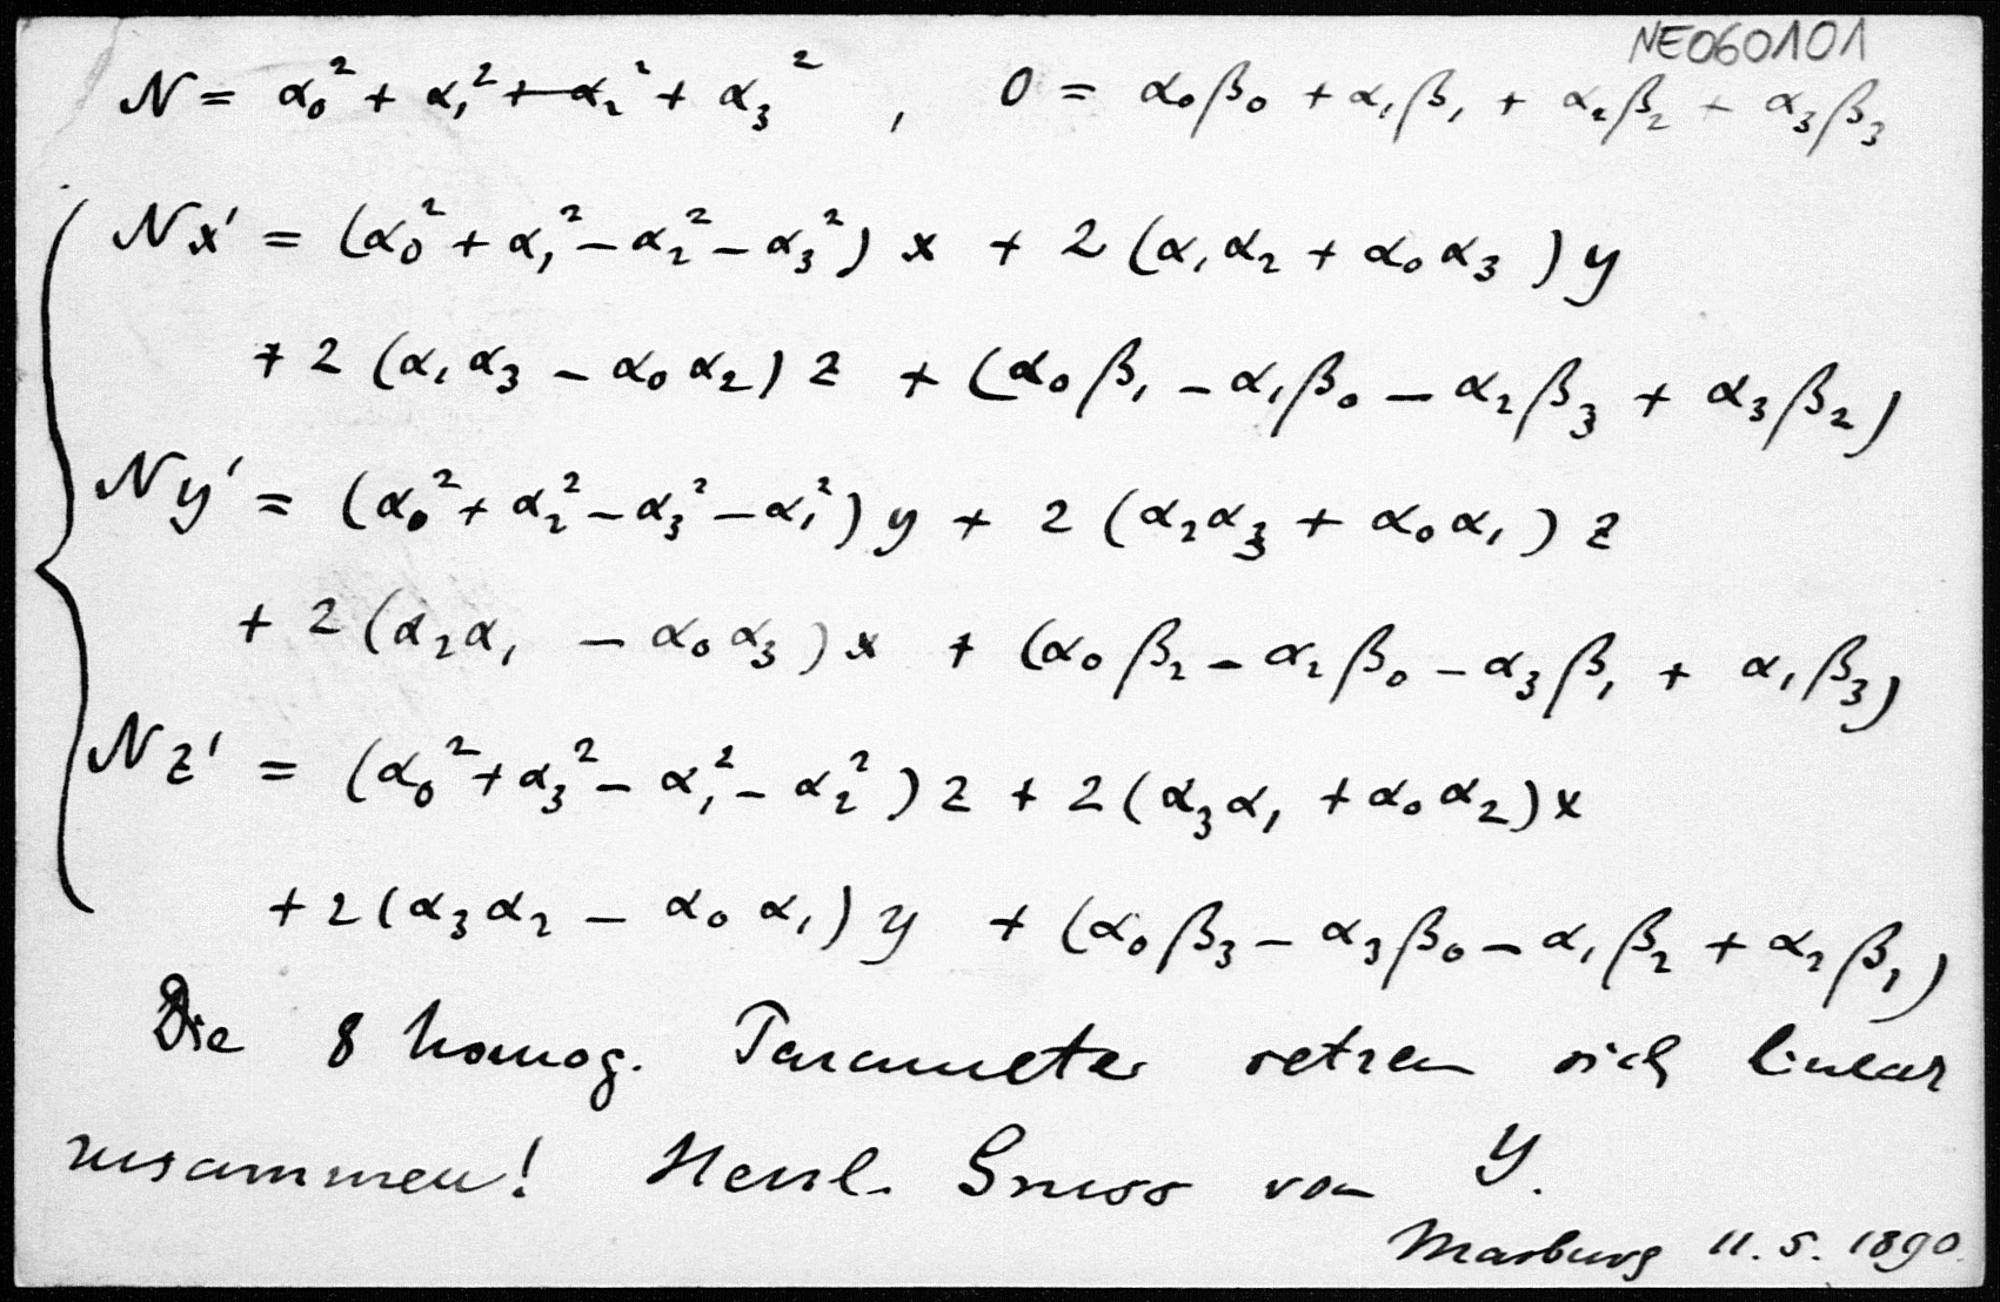 NE060101
N = α₀² + α₁² + α₂² + α₃² , 0 = α₀β₀ + α₁β₁ + α₂β₂ + α₃β₃
Nx' = (α₀² + α₁² – α₂² – α₃²) x + 2 (α₁α₂ + α₀α₃) y
+ 2 (α₁α₃ – α₀α₂) z + (α₀β₁ – α₁β₀ – α₂β₃ + α₃β₂)
Ny' = (α₀² + α₂² – α₃² – α₁²) y + 2 (α₂α₃ + α₀α₁) z
+ 2 (α₂α₁ – α₀α₃) x + (α₀β₂ – α₂β₀ – α₃β₁ + α₁β₃)
Nz' = (α₀² + α₃² – α₁² – α₂²) z + 2 (α₃α₁ + α₀α₂) x
+ 2 (α₃α₂ – α₀α₁) y + (α₀β₃ – α₃β₀ – α₁β₂ + α₂β₁)
Die 8 homog. Parameter setzen sich linear
zusammen! Herzl. Gruss von
Marburg 11. 5. 1890.